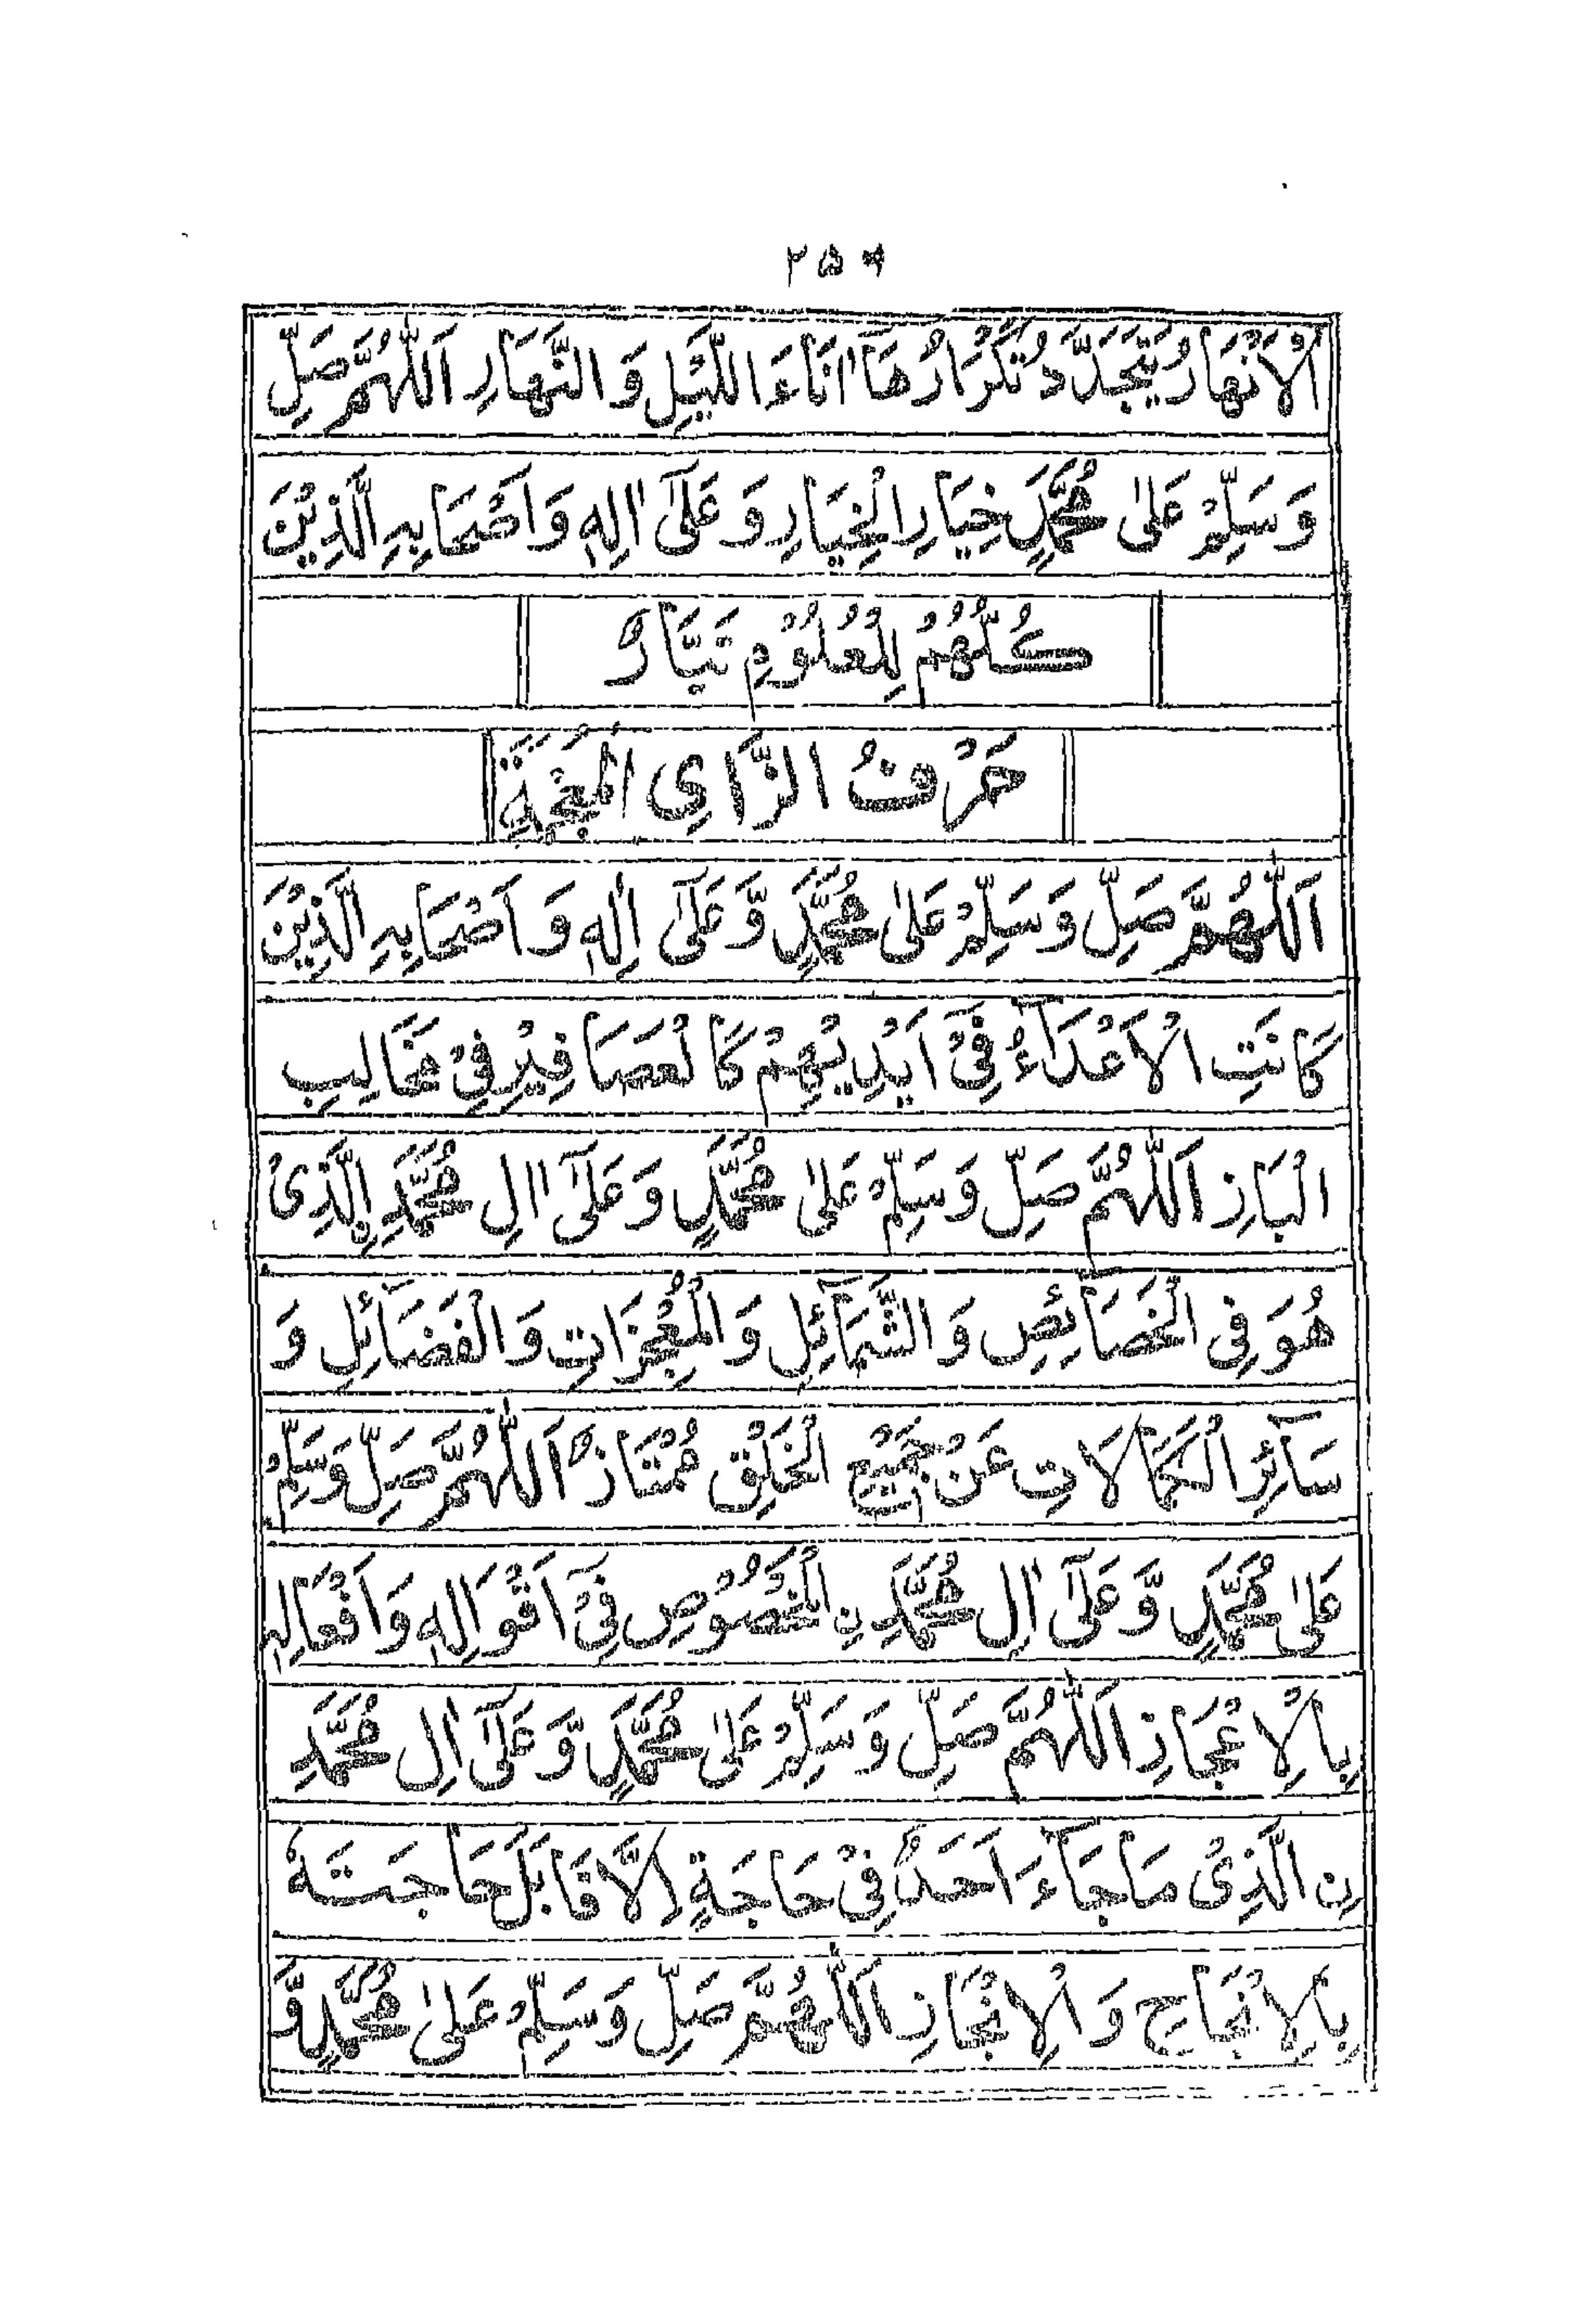 ۲۵۰
الْاَنْهَارُ يَتَجَدَّدُ تَكْرَارُهَآ اٰنَآءَ اللَّيْلِ وَ النَّهَارِ اَللّٰهُمَّ صَلِّ
وَ سَلِّمْ عَلىٰ مُحَمَّدٍ خِيَارِ الْخِيَارِ وَ عَلىٰٓ اٰلِهٖ وَ اَصْحَابِهِ الَّذِيْنَ
كُلُّهُمْ لِلْعُلُوْمِ تَيَّارٌ
حَرْفُ الزَّايِ الْمُعْجَمَةِ
اَللّٰهُمَّ صَلِّ وَ سَلِّمْ عَلىٰ مُحَمَّدٍ وَّ عَلىٰٓ اٰلِهٖ وَ اَصْحَابِهِ الَّذِيْنَ
كَانَتِ الْاَعْدَآءُ فِيْٓ اَيْدِيْهِمْ كَالْعَصَافِيْرِ فِيْ مَخَالِيبِ
الْبَازِ اَللّٰهُمَّ صَلِّ وَ سَلِّمْ عَلىٰ مُحَمَّدٍ وَ عَلىٰٓ اٰلِ مُحَمَّدِ نِ الَّذِيْ
هُوَ فِي الْخَصَآئِصِ وَ الشَّمَآئِلِ وَ الْمُعْجِزَاتِ وَ الْفَضَآئِلِ وَ
سَآئِرِ الْكَمَالَاتِ عَنْ جَمِيْعِ الْخَلْقِ مُمْتَازٌ اَللّٰهُمَّ صَلِّ وَ سَلِّمْ
عَلىٰ مُحَمَّدٍ وَّ عَلىٰٓ اٰلِ مُحَمَّدِ نِ الْمَخْصُوْصِ فِيْٓ اَقْوَالِهٖ وَ اَفْعَالِهٖ
بِالْاِعْجَازِ اَللّٰهُمَّ صَلِّ وَ سَلِّمْ عَلىٰ مُحَمَّدٍ وَّ عَلىٰٓ اٰلِ مُحَمَّدِ
نِ الَّذِيْ مَا جَآءَ اَحَدٌ فِيْ حَاجَةٍ اِلَّا قَابَلَ حَاجَتَهٗ
بِالْاِنْجَاحِ وَ الْاِنْجَازِ اَللّٰهُمَّ صَلِّ وَ سَلِّمْ عَلىٰ مُحَمَّدٍ وَّ